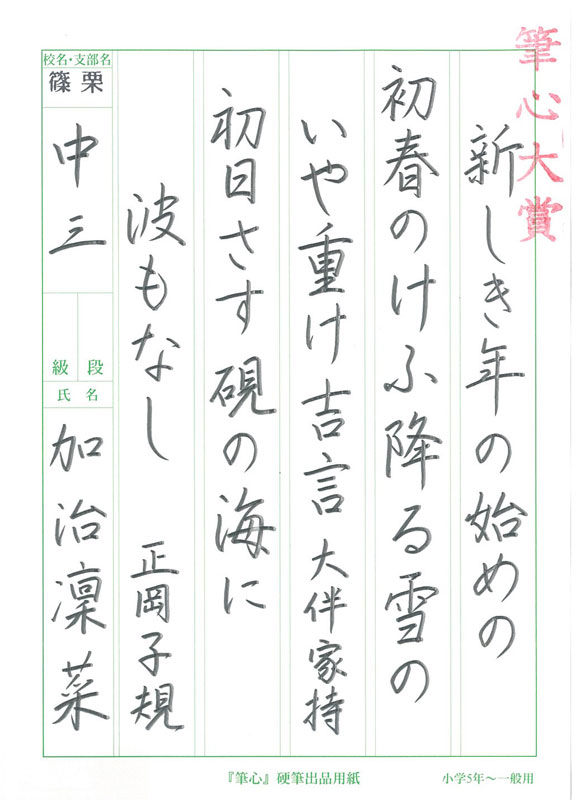 筆心大賞
新しき年の始めの
初春のけふ降る雪の
いや重け吉言 大伴家持
初日さす硯の海に
波もなし 正岡子規
校名・支部名
篠栗
中三
段級
氏名
加治凜菜
『筆心』硬筆出品用紙
小学5年〜一般用